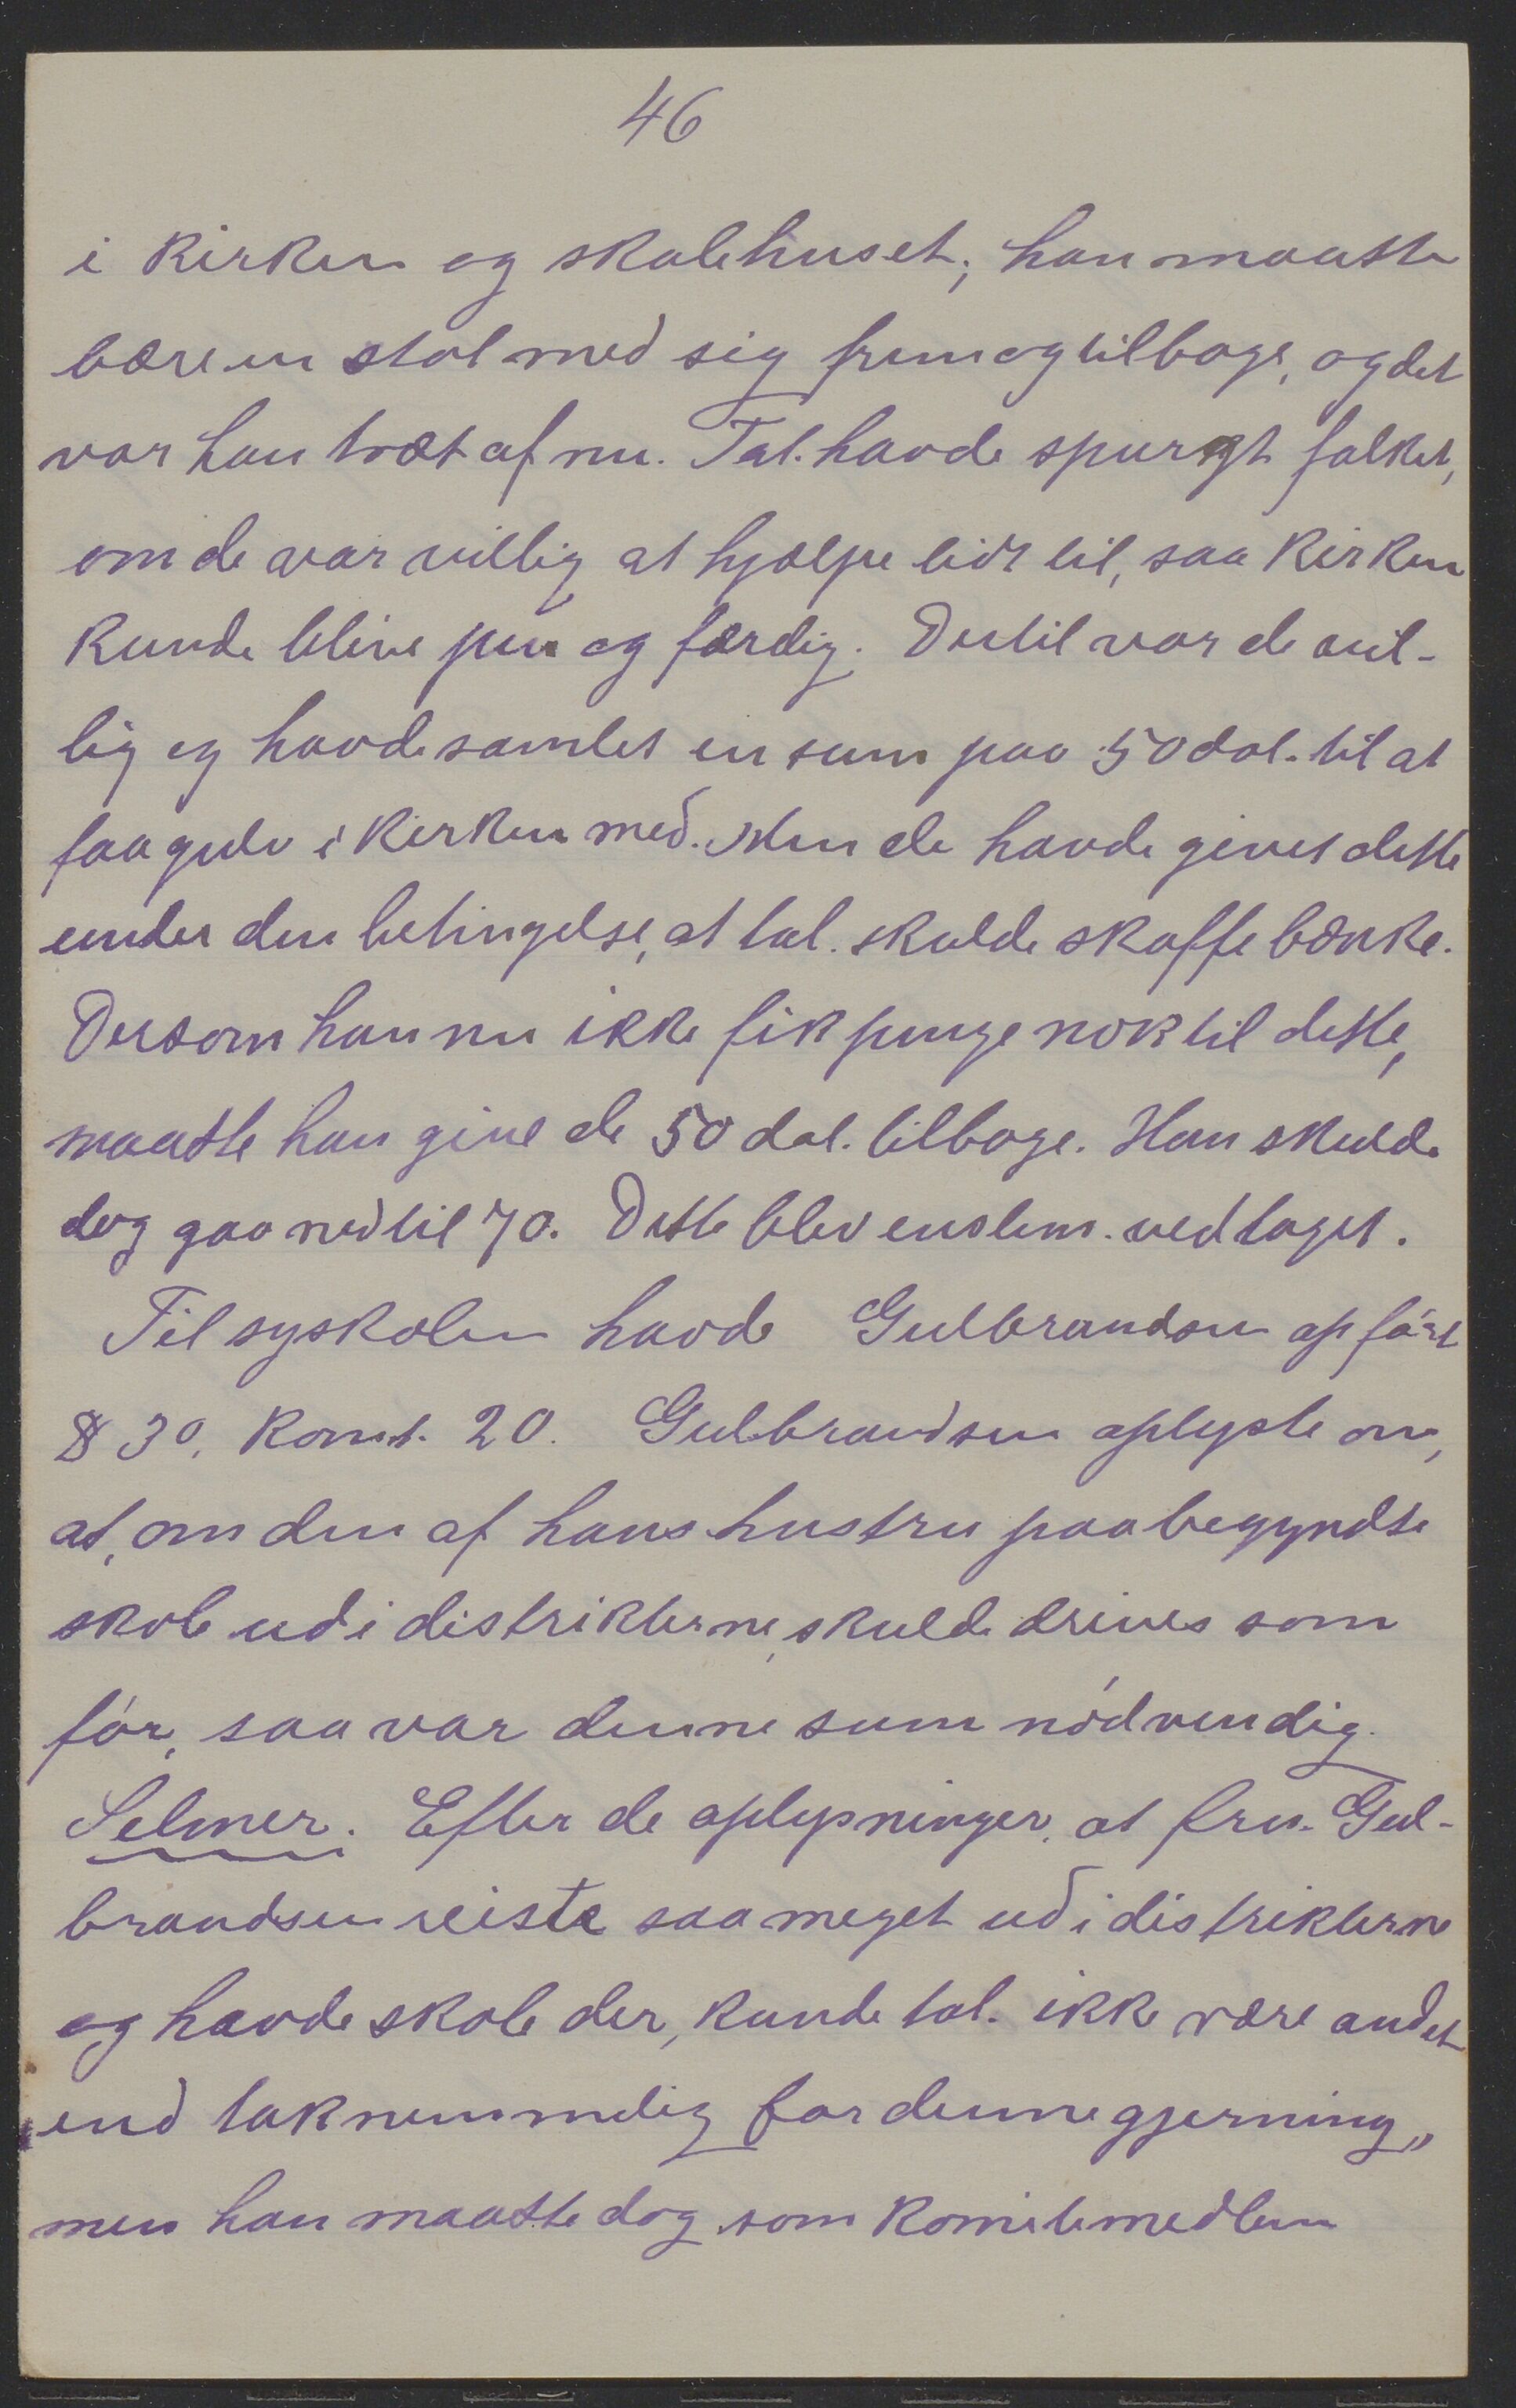 46
i kirken og skolehuset; han maatte
bære en stol med sig frem og tilbage, og det
var han træt af nu. Tal. havde spurgt folket,
om de var villig at hjælpe lidt til, saa kirken
kunde blive pen og færdig. Dertil var de vil-
lig og havde samlet en sum paa 50 dol. til at
faa gulv i kirken med. Men de havde givet dette
under den betingelse, at tal. skulde skaffe bænke.
Dersom han nu ikke fik penge nok til dette,
maatte han give de 50 dol. tilbage. Han skulde
dog gaa ned til 70. Dette blev enstem. vedtaget.
Til syskolen havde Gulbrandsen opført
$ 30, komt. 20. Gulbrandsen oplyste om,
at, om den af hans hustru paabegyndte
skole ud i distrikterne, skulde drives som
før, saa var denne sum nødvendig.
Selmer. Efter de oplysninger, at fru. Gul-
brandsen reiste saa meget ud i distrikterne
og havde skole der, kunde tal. ikke være andet
end taknemmelig for denne gjerning,,
men han maatte dog som komitemedlem